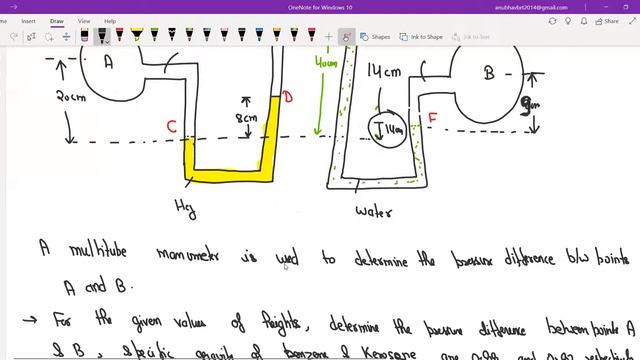 OneNote for Windows 10
anubhavbrt2014@gmail.com
Home Insert Draw View Help
Shapes Ink to Shape Ink to Text
A
B
20cm
8cm
40cm
14cm
14cm
9cm
C
D
F
Hg
water
A multitube manometer is used to determine the pressure difference b/w points
A and B.
→ For the given values of heights, determine the pressure difference between points A
& B, specific gravity of benzene & Kerosene are